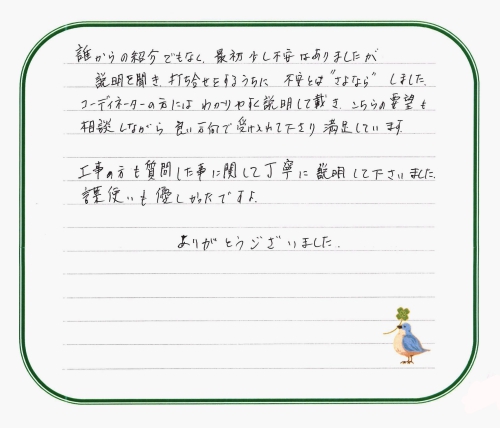 誰からの紹介でもなく、最初少し不安はありましたが
説明を聞き、打ち合せをするうちに 不安とは"さよなら"しました。
コーディネーターの方には わかりやすく説明して戴き、こちらの要望も
相談しながら 良い方向で受け入れて下さり 満足しています。
工事の方も質問した事に関して丁寧に説明して下さいました。
言葉使いも優しかったですよ。
ありがとうございました。